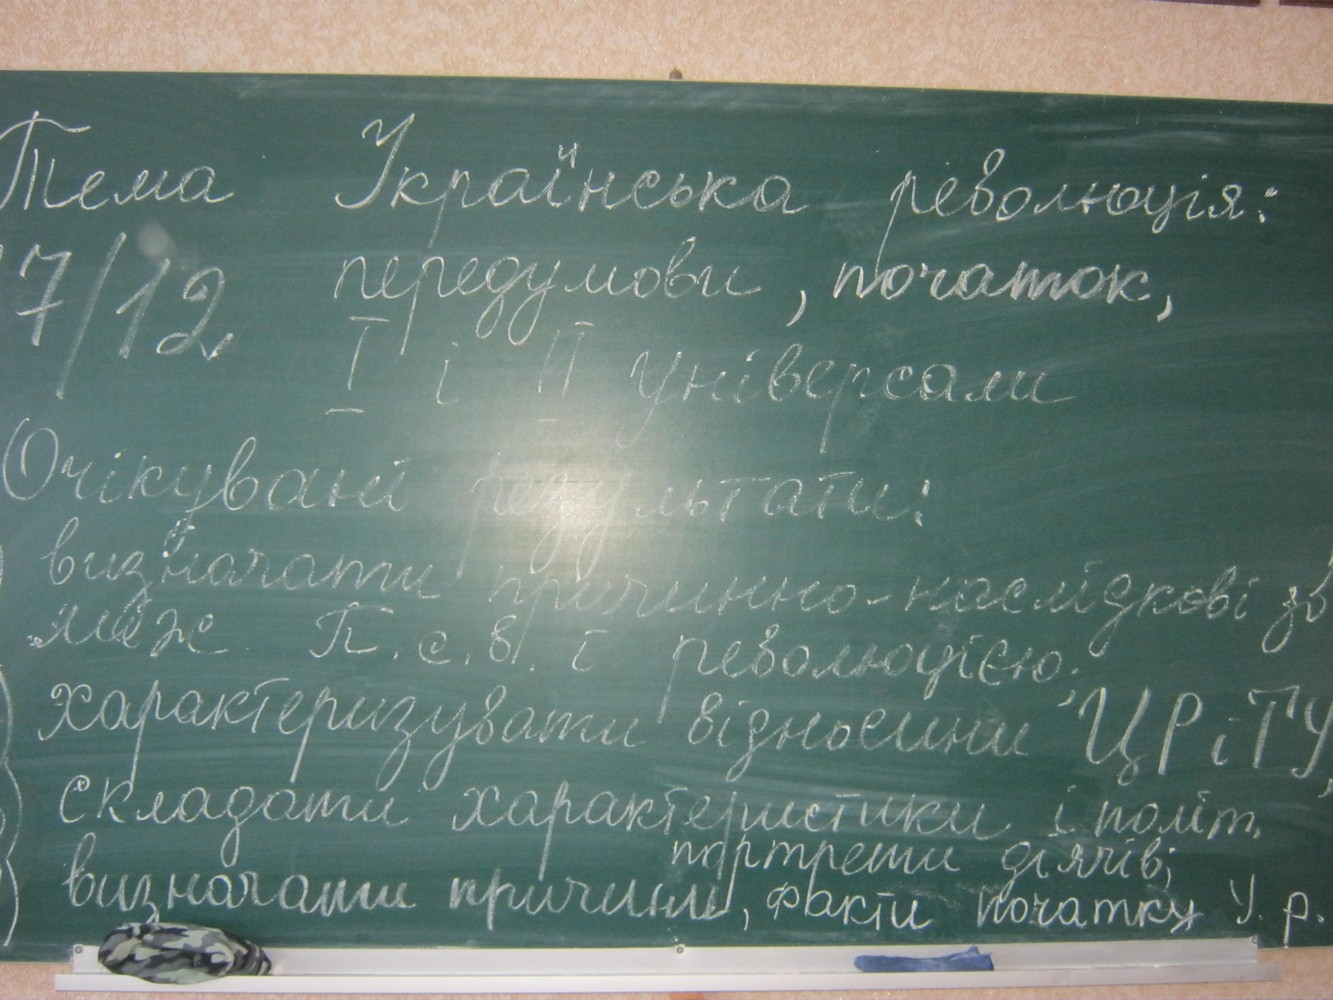 Тема Українська революція:
17/12 передумови, початок,
I і II універсали
Очікувані результати:
визначати причинно-наслідкові зв
між П.с.в. і революцією.
характеризувати відносини ЦР і ТУ,
складати характеристики і політ.
портрети діячів;
визначати причини, факти початку У. р.